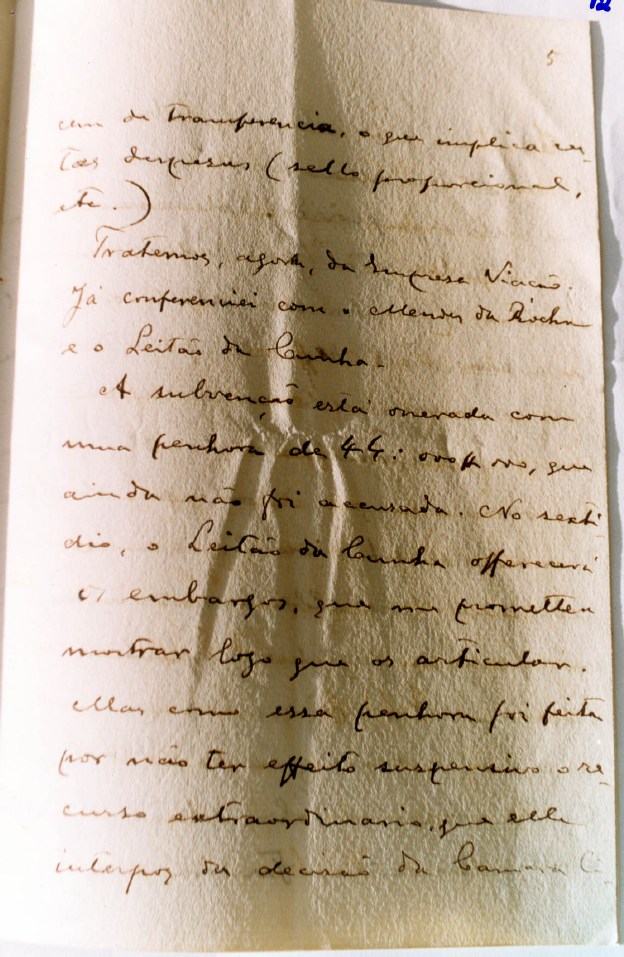 12
5
em da transferencia, o que implica cer-
tas despesas (sello proporcional,
etc.)
Tratemos, agora, da Empresa Viação.
Já conferenciei com o Mendes da Rocha
e o Leitão da Cunha.
A subvenção está onerada com
uma penhora de 44:000$000, que
ainda não foi accusada. No sextí-
dio, o Leitão da Cunha offerecerá
os embargos, que me prometteu
mostrar logo que os articular.
Mas como essa penhora foi feita
por não ter effeito suspensivo o re-
curso extraordinario, que elle
interpoz da decisão da Camara